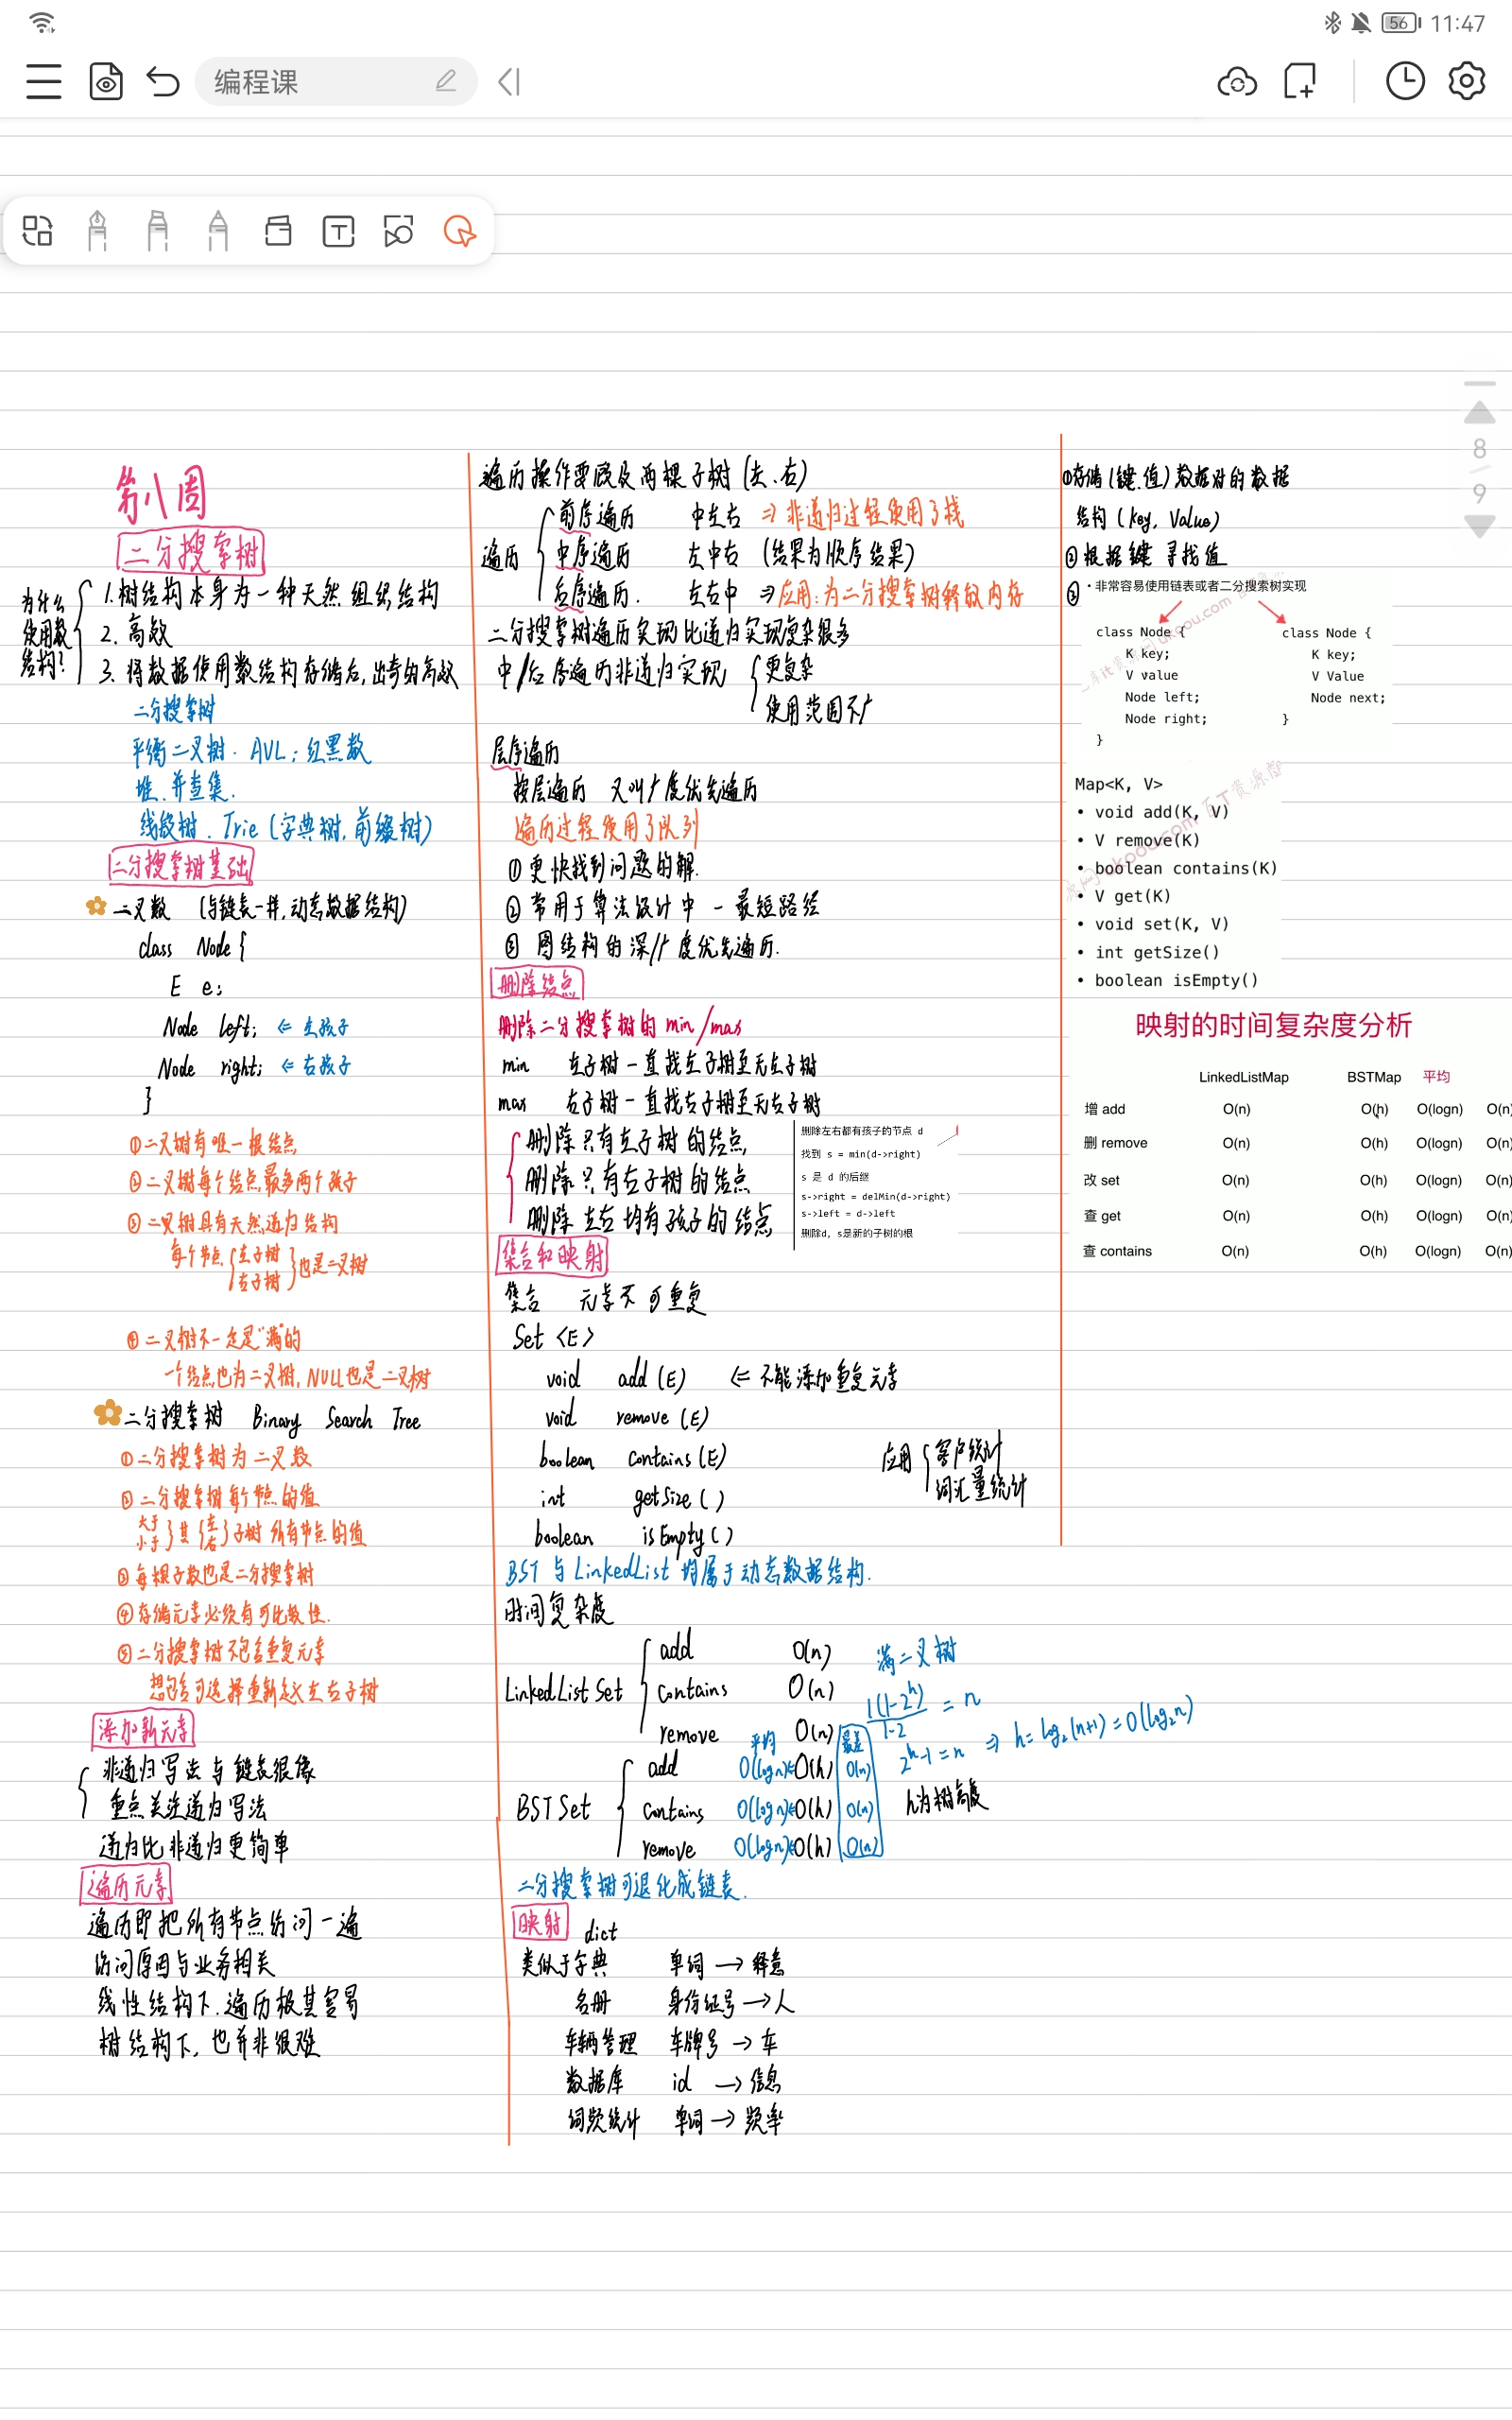 56 11:47
编程课
8
9
第八周
二分搜索树
为什么使用数结构?
1.树结构本身为一种天然组织结构
2.高效
3.将数据使用数结构存储后,出奇的高效
二分搜索树
平衡二叉树. AVL;红黑数
堆.并查集.
线段树. Trie(字典树,前缀树)
二分搜索树基础
二叉数 (与链表一样,动态数据结构)
class Node{
E e;
Node left; ⇐ 左孩子
Node right; ⇐ 右孩子
}
①二叉树有唯一根结点
②二叉树每个结点最多两个孩子
③二叉树具有天然递归结构
每个节点{左子树 右子树}也是二叉树
④二叉树不一定是"满"的
一个结点也为二叉树,NULL也是二叉树
二分搜索树 Binary Search Tree
①二分搜索树为二叉数
②二分搜索树每个节点的值
大于 小于}其{左 右}子树所有节点的值
③每棵子数也是二分搜索树
④存储元素必须有可比较性.
⑤二分搜索树不包含重复元素
想包含可选择重新定义左右子树
添加新元素
非递归写法与链表很像
重点关注递归写法
递归比非递归更简单
遍历元素
遍历即把所有节点访问一遍
访问原因与业务相关
线性结构下.遍历极其容易
树结构下,也并非很难
遍历操作要顾及两棵子树(左、右)
遍历
前序遍历 中左右 ⇒ 非递归过程使用了栈
中序遍历 左中右 (结果为顺序结果)
后序遍历. 左右中 ⇒应用:为二分搜索树释放内存
二分搜索树遍历实现比递归实现复杂很多
中/后序遍历非递归实现{更复杂
使用范围不广
层序遍历
按层遍历 又叫广度优先遍历
遍历过程使用了队列
①更快找到问题的解.
②常用于算法设计中-最短路径
③图结构的深/广度优先遍历.
删除结点
删除二分搜索树的min/max
min 左子树一直找左子树至无左子树
max 右子树一直找右子树至无右子树
删除只有左子树的结点
删除只有右子树的结点
删除左右均有孩子的结点
删除左右都有孩子的节点 d
找到 s = min(d->right)
s 是 d 的后继
s->right = delMin(d->right)
s->left = d->left
删除d, s是新的子树的根
集合和映射
集合 元素不可重复
Set <E>
void add(E) ⇐不能添加重复元素
void remove(E)
boolean contains(E)
int getSize()
boolean isEmpty()
应用{客户统计
词汇量统计
BST 与 LinkedList 均属于动态数据结构.
时间复杂度
LinkedList Set
add O(n)
contains O(n)
remove O(n)
满二叉树
1(1-2^h)/1-2 = n
2^h-1=n ⇒ h=log₂(n+1)=O(log₂n)
h为树高度
平均 最差
BST Set
add O(logn)⇐O(h) O(n)
contains O(logn)⇐O(h) O(n)
remove O(logn)⇐O(h) O(n)
二分搜索树可退化成链表.
映射 dict
类似于字典 单词→释意
名册 身份证号→人
车辆管理 车牌号→车
数据库 id→信息
词频统计 单词→频率
①存储(键.值)数据对的数据
结构(key,Value)
②根据键 寻找值
③
• 非常容易使用链表或者二分搜索树实现
class Node {
K key;
V value
Node left;
Node right;
}
class Node {
K key;
V Value
Node next;
}
Map<K, V>
• void add(K, V)
• V remove(K)
• boolean contains(K)
• V get(K)
• void set(K, V)
• int getSize()
• boolean isEmpty()
映射的时间复杂度分析
LinkedListMap BSTMap 平均
增 add O(n) O(h) O(logn) O(n)
删 remove O(n) O(h) O(logn) O(n)
改 set O(n) O(h) O(logn) O(n)
查 get O(n) O(h) O(logn) O(n)
查 contains O(n) O(h) O(logn) O(n)